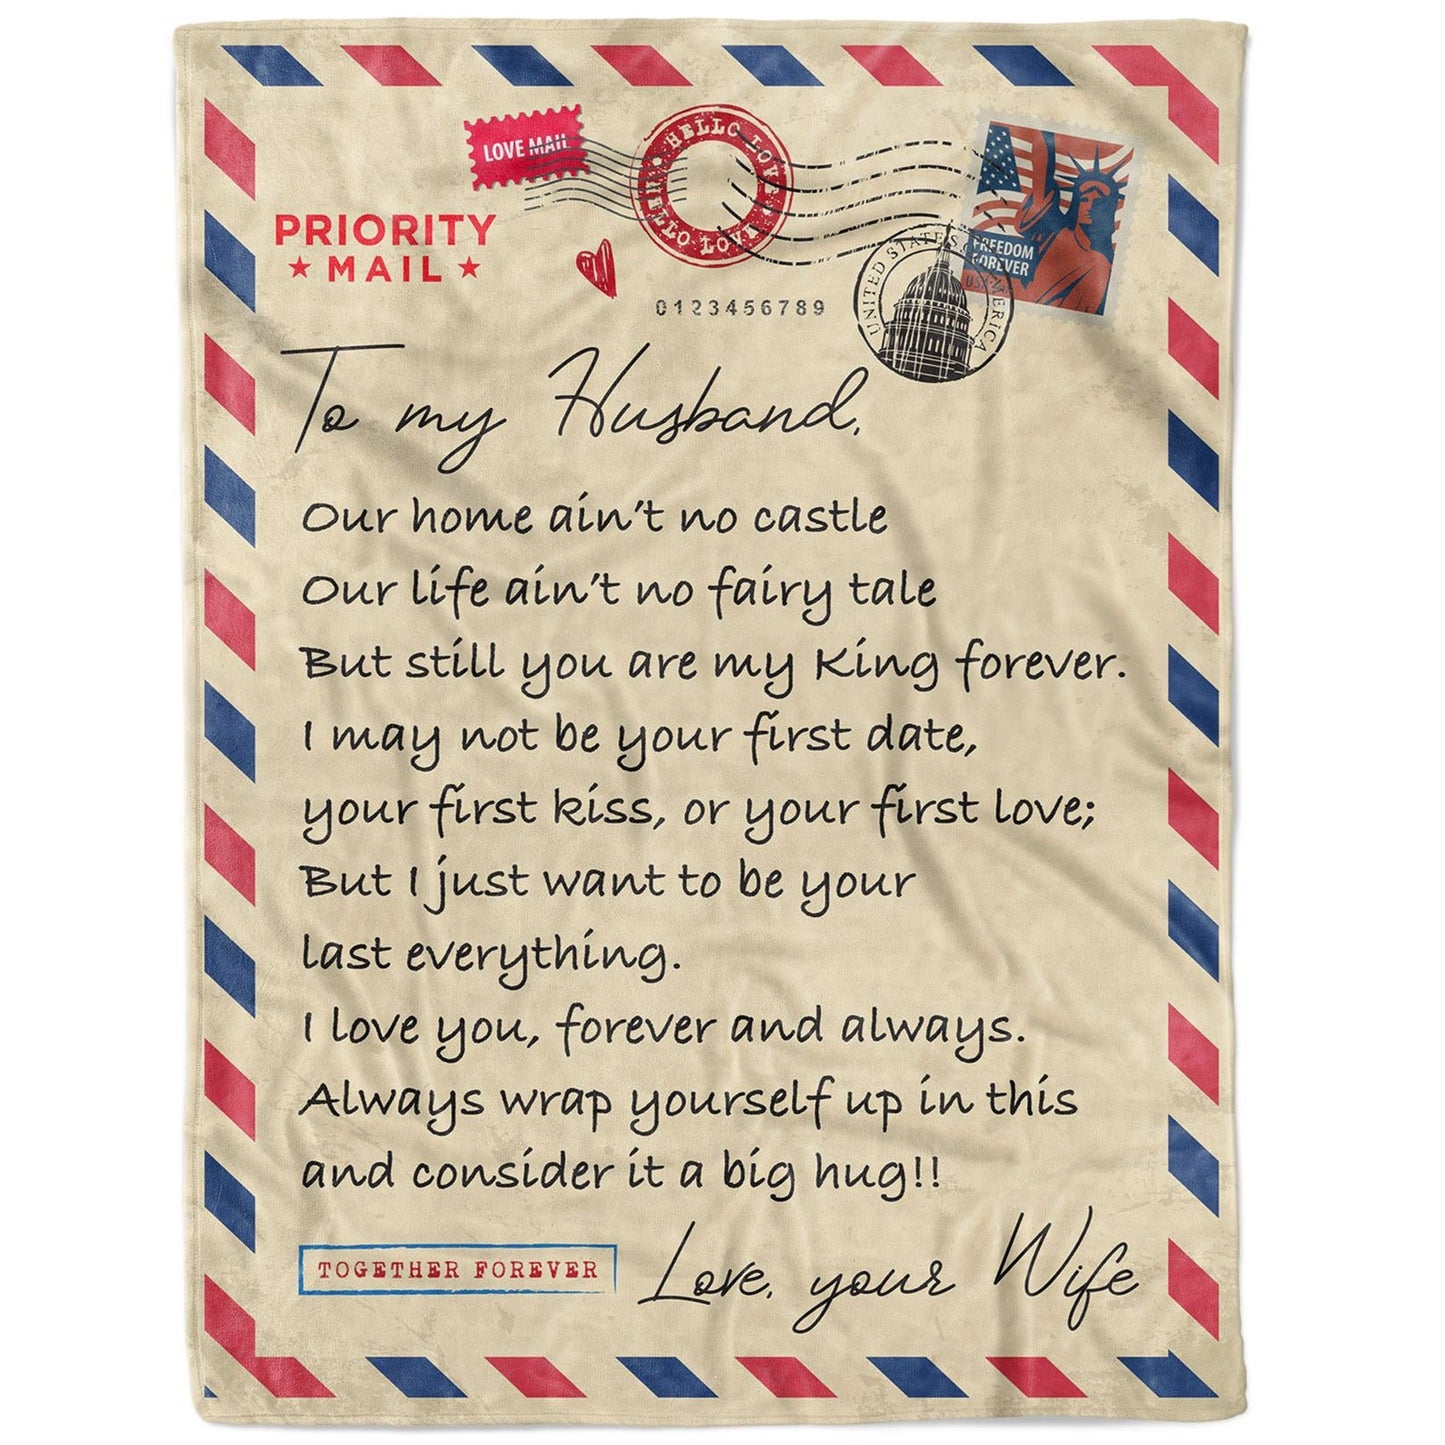 LOVE MAIL
HELLO LOVE
HELLO LOVE
PRIORITY
MAIL
FREEDOM
FOREVER
USA
UNITED STATES AMERICA
0123456789
To my Husband,
Our home ain't no castle
Our life ain't no fairy tale
But still you are my King forever.
I may not be your first date,
your first kiss, or your first love;
But I just want to be your
last everything.
I love you, forever and always.
Always wrap yourself up in this
and consider it a big hug!!
TOGETHER FOREVER
Love, your Wife